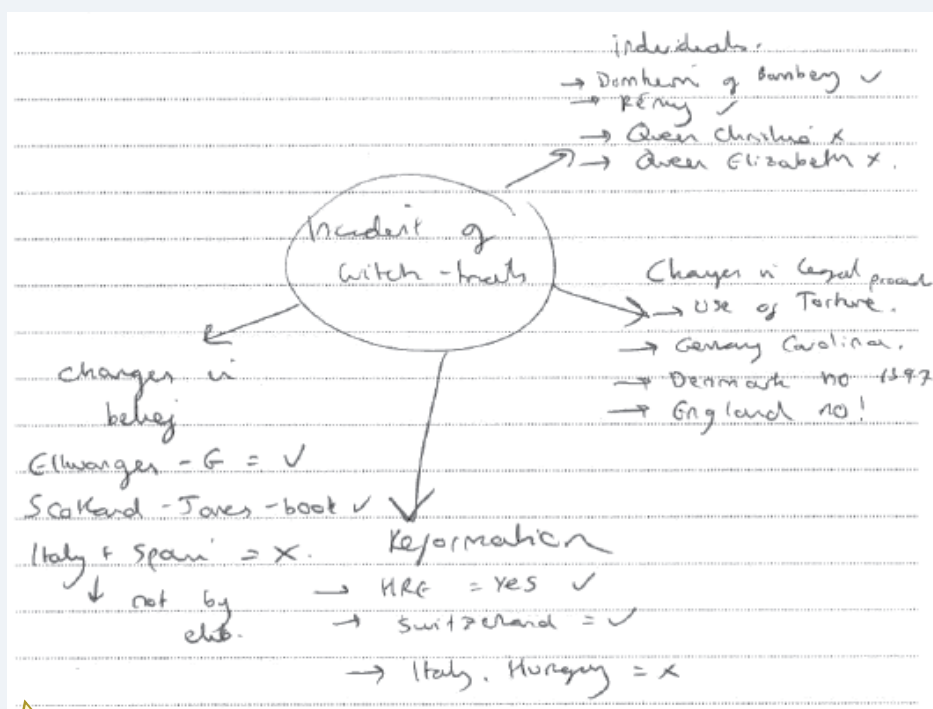 individuals.
→ Domherr of Bamberg ✓
→ Rémy ✓
→ Queen Christina x
→ Queen Elizabeth x.
Incident of
witch-trials
Changes in legal
→ Use of Torture.
→ Germany Carolina.
→ Denmark no
→ England no!
changes in
belief
Ellwangen - G = ✓
Scotland - James - book ✓
Italy + Spain = x.
↓ not by
Reformation
→ HRE = YES ✓
→ Switzerland = ✓
→ Italy, Hungary = x